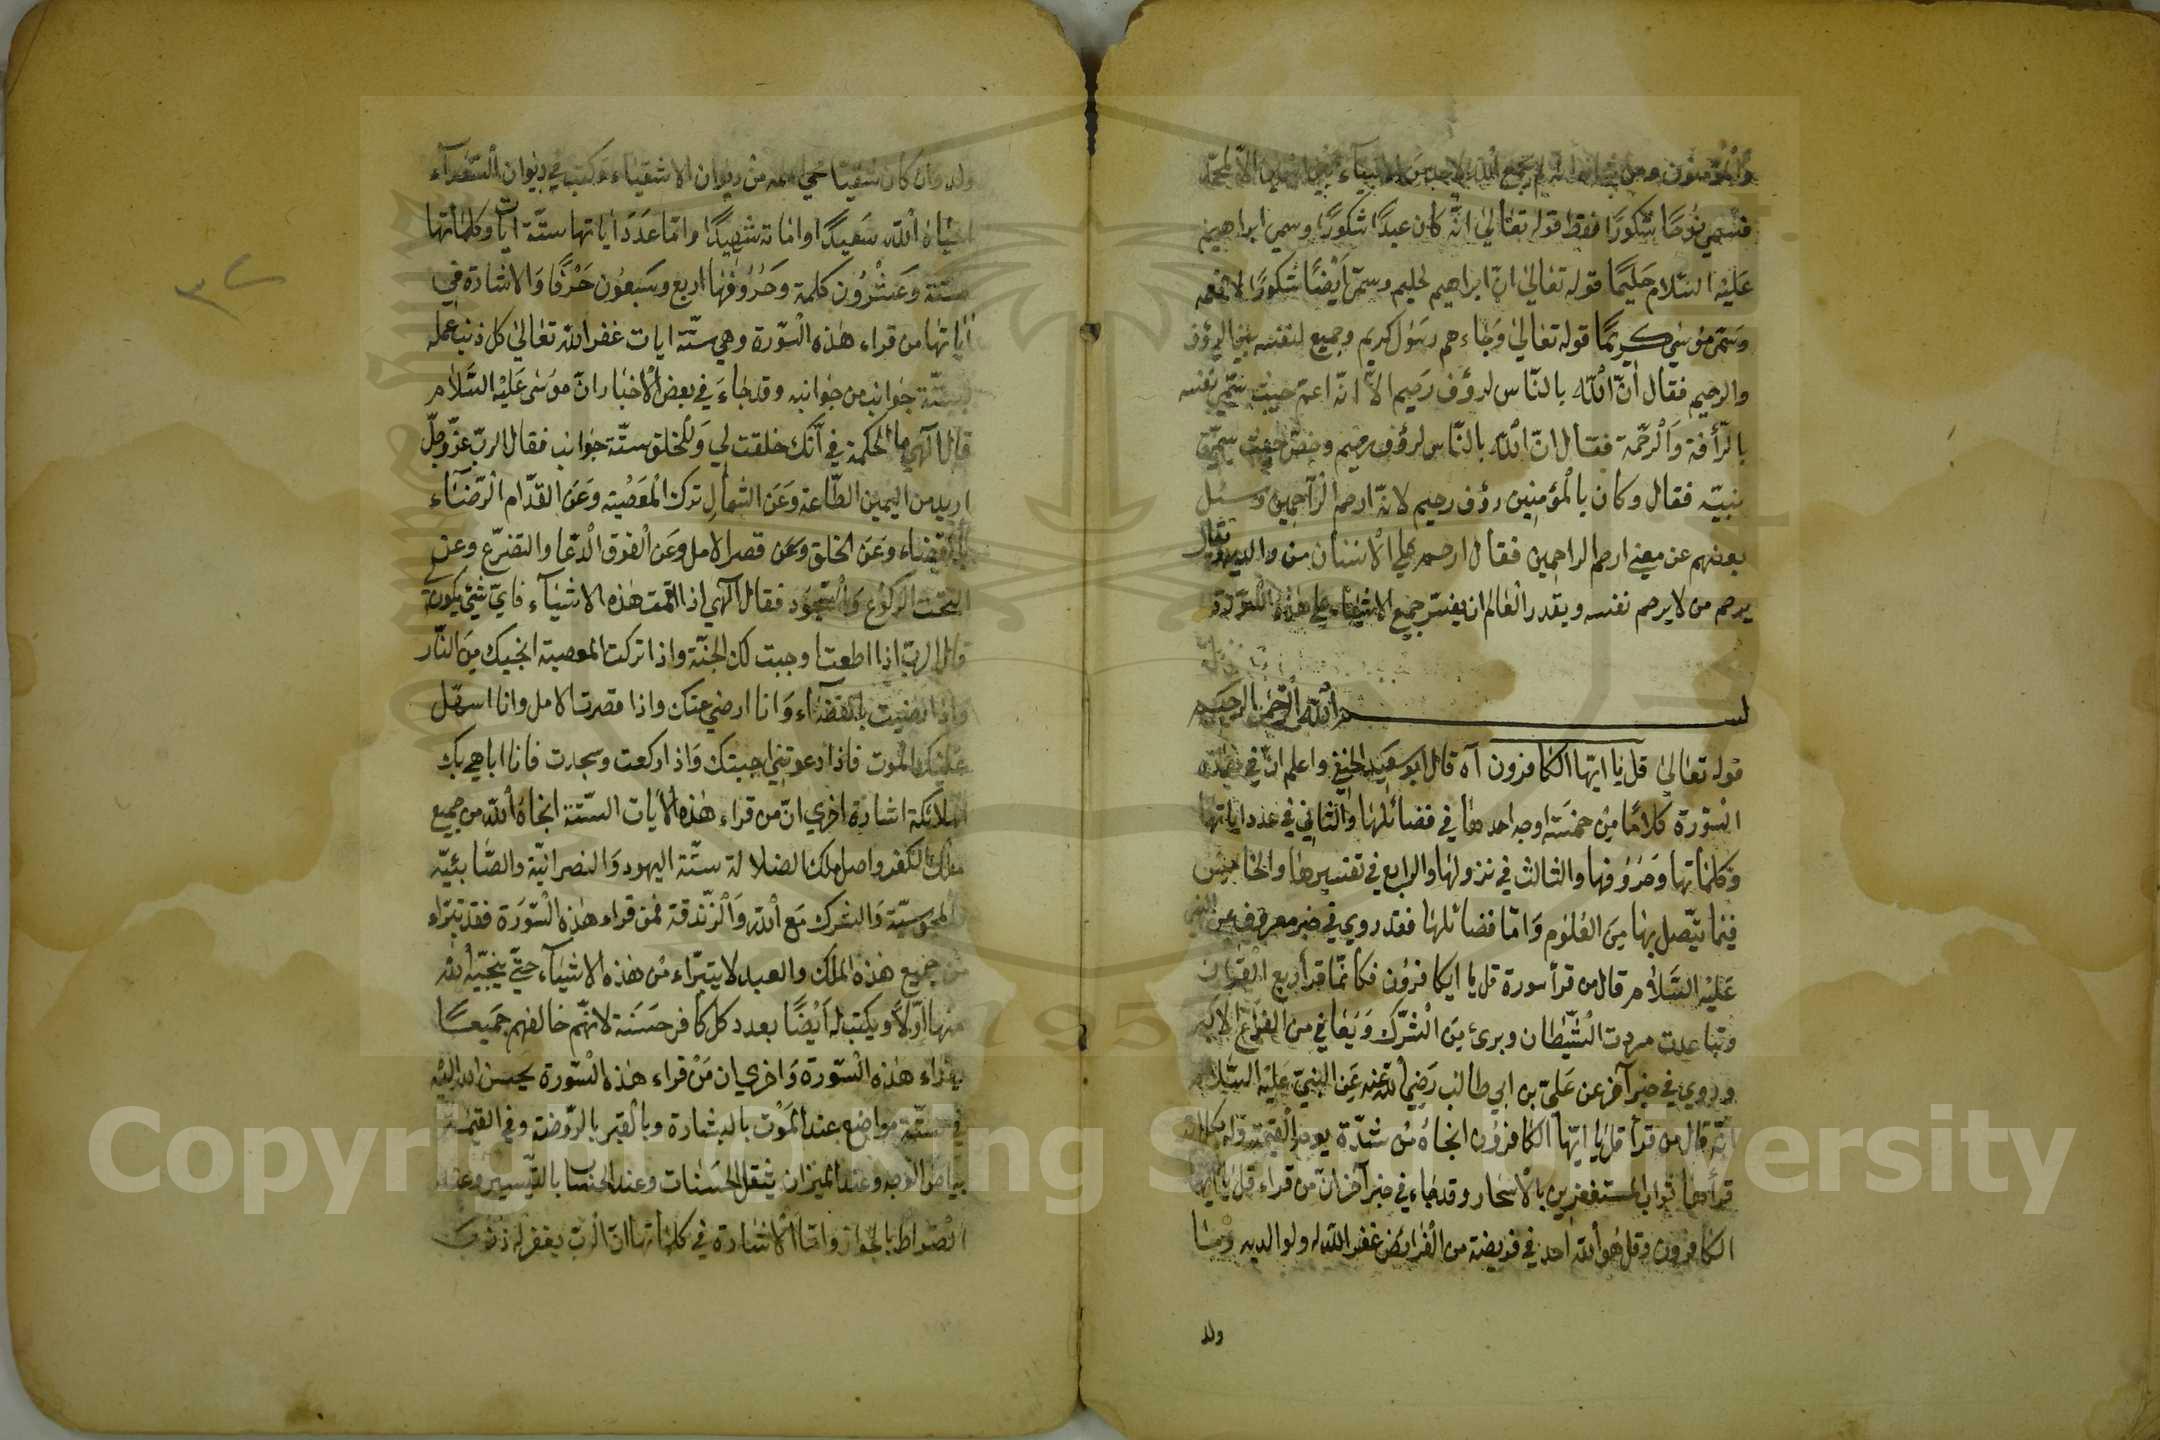 والمؤمنون ومن
فسمي نوحا شكورا فقط قوله تعالى انه كان عبدا شكورا وسمي ابراهيم
عليه السلام حليما قوله تعالى ان ابراهيم لحليم وسمى ايضا شكورا لانعمه
وسمى موسى كريما قوله تعالى وجاءهم رسول كريم وجميع لنفسه بين الرؤف
والرحيم فقال ان الله بالناس لرؤف رحيم الا انه اعم حيث سمى نفسه
بالرأفة والرحمة فقال ان الله بالناس لرؤف رحيم وخص حيث سمى
نبيه فقال وكان بالمؤمنين رؤف رحيم لانه ارحم الراحمين وسئل
بعضهم عن معنى ارحم الراحمين فقال ارحم على الانسان من والديه
يرحم من لا يرحم نفسه ويقدر العالم ان يفسر جميع الاشياء على هذه
بسم الله الرحمن الرحيم
قوله تعالى قل يا ايها الكافرون آه قال ابو سعيد الحنفي واعلم ان في هذه
السورة كلاما من خمسة اوجه احدها في فضائلها والثاني في عدد اياتها
وكلماتها وحروفها والثالث في نزولها والرابع في تفسيرها والخامس
فيما يتصل بها من العلوم واما فضائلها فقد روي في خبر معروف عن النبي
عليه السلام قال من قرأ سورة قل يا ايكافرون فكأنما قرأ ربع القران
وتباعدت مردت الشيطان وبرئ من الشرك ويعافى من الفزع الاكبر
وروي في خبر آخر عن علي بن ابي طالب رضي الله عنه عن النبي عليه السلام
انه قال من قرأ قل يا ايها الكافرون انجاه من شدة يوم القيمة وله بكل
قرأها ثواب المستغفرين بالاسحار وقد جاء في خبر آخر ان من قراء قل يا ايها
الكافرون وقل هو الله احد في فريضة من الفرايض غفر الله له ولوالديه وما
ولد
ولد وان كان شقيا محي اسمه من ديوان الاشقياء وكتب في ديوان السعداء
احياه الله سعيدا واماته شهيدا واما عدد اياتها ستة ايات وكلماتها
ستة وعشرون كلمة وحروفها اربع وسبعون حرفا والاشارة في
اياتها من قراء هذه السورة وهي ستة ايات غفر الله تعالى كل ذنب عمله
بستة جوانب من جوانبه وقد جاء في بعض الاخبار ان موسى عليه السلام
قال الهي ما الحكمة في انك خلقت لي ولخلق ستة جوانب فقال الرب عز وجل
اريد من اليمين الطاعة وعن الشمال ترك المعصية وعن القدام الرضاء
بالقضاء وعن الخلق وعن قصر الامل وعن الفوق الدعا والتضرع وعن
التحت الركوع والسجود فقال الهي اذا اتممت هذه الاشياء فاي شئ يكون
قال الرب اذا اطعت وجبت لك الجنة واذا تركت المعصية انجيك من النار
واذا رضيت بالقضاء وانا ارضي عنك واذا قصرت الامل وانا اسهل
عليك الموت فاذا دعوتني اجبتك واذا ركعت وسجدت فانا اباهي بك
الملائكة اشارة اخري ان من قراء هذه الايات الستة انجاه الله من جميع
ملك الكفر واصل ملك الضلالة ستة اليهود والنصرانية والصابئية
والمجوسية والشرك مع الله والزندقة فمن قراء هذه السورة فقد تبراء
من جميع هذه الملك والعبد لا يتبراء من هذه الاشياء حتى ينجيه الله
منها اولا ويكتب له ايضا بعدد كل كافر حسنة لانهم خالفهم جميعا
بقراء هذه السورة واخري ان من قراء هذه السورة يحسن الله اليه
في ستة مواضع عند الموت بالبشارة وبالقبر بالروضة وفي القيمة
بياض الوجه وعند الميزان بثقل الحسنات وعند الحساب بالتيسير وعند
الصراط بالجواز واما الاشارة في كلماتها ان الرب يغفر له ذنوب
٣٢
Copyright © King Saud University